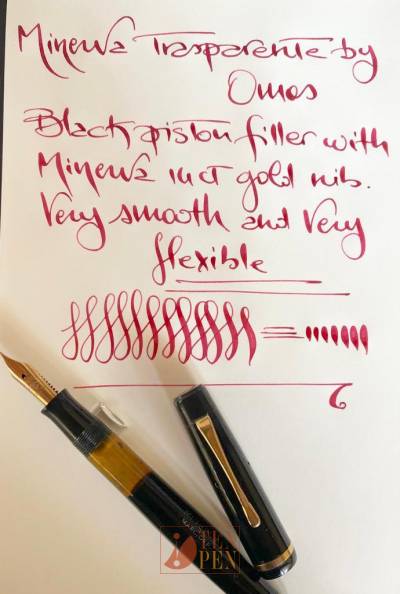 Minerva Trasparente by
Omas
Black piston filler with
Minerva 14ct gold nib.
Very smooth and Very
flexible
6
TEN
PEN